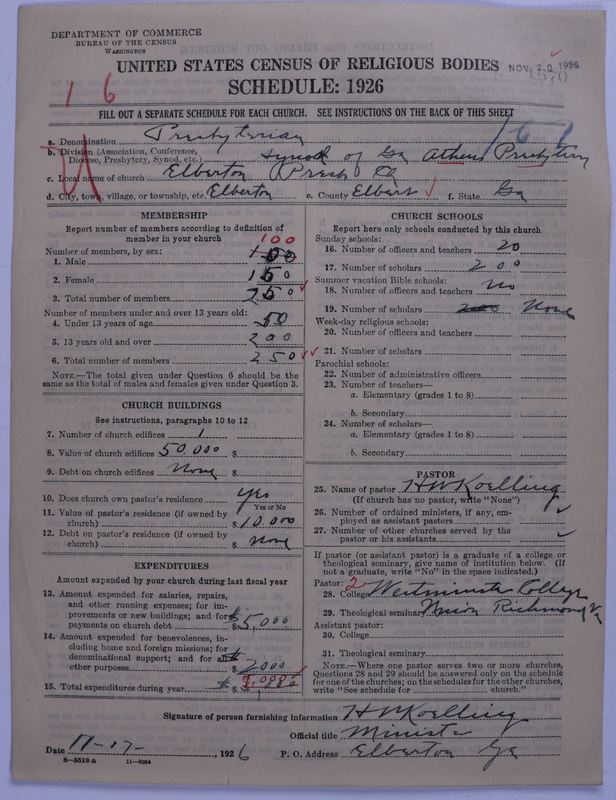 DEPARTMENT OF COMMERCE
BUREAU OF THE CENSUS
WASHINGTON
UNITED STATES CENSUS OF RELIGIOUS BODIES
NOV 20 1926
SCHEDULE: 1926
1 6
FILL OUT A SEPARATE SCHEDULE FOR EACH CHURCH. SEE INSTRUCTIONS ON THE BACK OF THIS SHEET
a. Denomination Presbyterian
b. Division (Association, Conference, Diocese, Presbytery, Synod, etc.) Synod of Ga Athens Presbytery
c. Local name of church Elberton Presb Ch
d. City, town, village, or township, etc. Elberton e. County Elbert f. State Ga
MEMBERSHIP
Report number of members according to definition of
member in your church
100
Number of members, by sex:
1. Male
2. Female 150
3. Total number of members 250
Number of members under and over 13 years old:
4. Under 13 years of age 50
5. 13 years old and over 200
6. Total number of members 250
NOTE.—The total given under Question 6 should be the
same as the total of males and females given under Question 3.
CHURCH BUILDINGS
See instructions, paragraphs 10 to 12
7. Number of church edifices 1
8. Value of church edifices 50000 $
9. Debt on church edifices None $
10. Does church own pastor's residence yes
Yes or No
11. Value of pastor's residence (if owned by
church) $ 10.000
12. Debt on pastor's residence (if owned by
church) $ None
EXPENDITURES
Amount expended by your church during last fiscal year
13. Amount expended for salaries, repairs,
and other running expenses; for im-
provements or new buildings; and for
payments on church debt $ 5,000
14. Amount expended for benevolences, in-
cluding home and foreign missions; for
denominational support; and for all
other purposes $ 2000
15. Total expenditures during year $
CHURCH SCHOOLS
Report here only schools conducted by this church
Sunday schools:
16. Number of officers and teachers 20
17. Number of scholars 200
Summer vacation Bible schools:
18. Number of officers and teachers No
19. Number of scholars None
Week-day religious schools:
20. Number of officers and teachers
21. Number of scholars
Parochial schools:
22. Number of administrative officers
23. Number of teachers—
a. Elementary (grades 1 to 8)
b. Secondary
24. Number of scholars—
a. Elementary (grades 1 to 8)
b. Secondary
PASTOR
25. Name of pastor H W Koelling
(If church has no pastor, write "None")
26. Number of ordained ministers, if any, em-
ployed as assistant pastors
27. Number of other churches served by the
pastor or his assistants
If pastor (or assistant pastor) is a graduate of a college or
theological seminary, give name of institution below. (If
not a graduate, write "No" in the space indicated.)
Pastor: 2
28. College Westminster College
29. Theological seminary Union Richmond Va
Assistant pastor:
30. College
31. Theological seminary
NOTE.—Where one pastor serves two or more churches,
Questions 28 and 29 should be answered only on the schedule
for one of the churches; on the schedules for the other churches,
write "See schedule for church."
Signature of person furnishing information H W Koelling
Official title Minister
Date 11-17- 1926 P. O. Address Elberton Ga
8-5518 a 11-9064